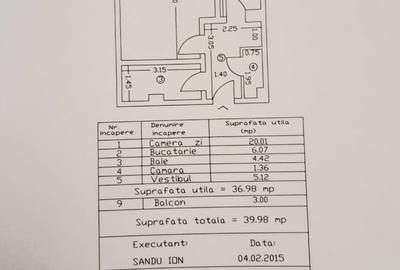 2.25
1.00
3.05
0.75
5
4
3.15
3
1.40
1.95
1.45
Nr. incapere Denumire incapere Suprafata utila (mp)
1 Camera zi 20.01
2 Bucatarie 6.07
3 Baie 4.42
4 Camara 1.36
5 Vestibul 5.12
Suprafata utila = 36.98 mp
9 Balcon 3.00
Suprafata totala = 39.98 mp
Executant: Data:
SANDU ION 04.02.2015